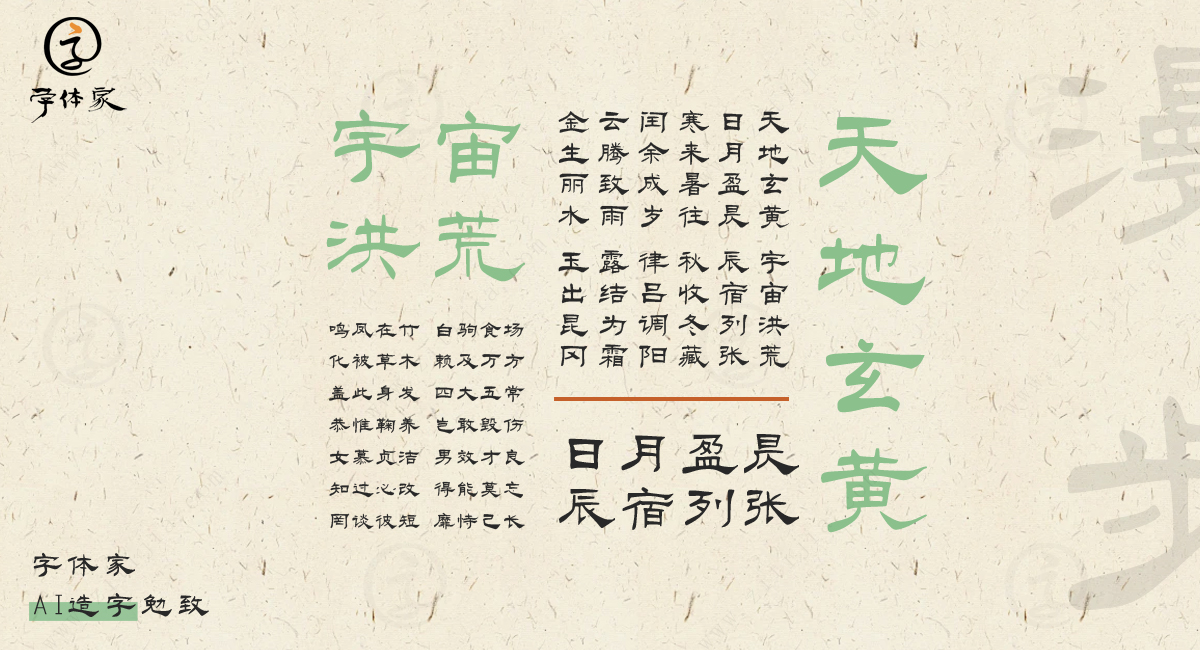 字体家
漫步
天地玄黄
宇宙
洪荒
天地玄黄 宇宙洪荒
日月盈昃 辰宿列张
寒来暑往 秋收冬藏
闰余成岁 律吕调阳
云腾致雨 露结为霜
金生丽水 玉出昆冈
日月盈昃
辰宿列张
鸣凤在竹 白驹食场
化被草木 赖及万方
盖此身发 四大五常
恭惟鞠养 岂敢毁伤
女慕贞洁 男效才良
知过必改 得能莫忘
罔谈彼短 靡恃己长
字体家
AI造字勉致